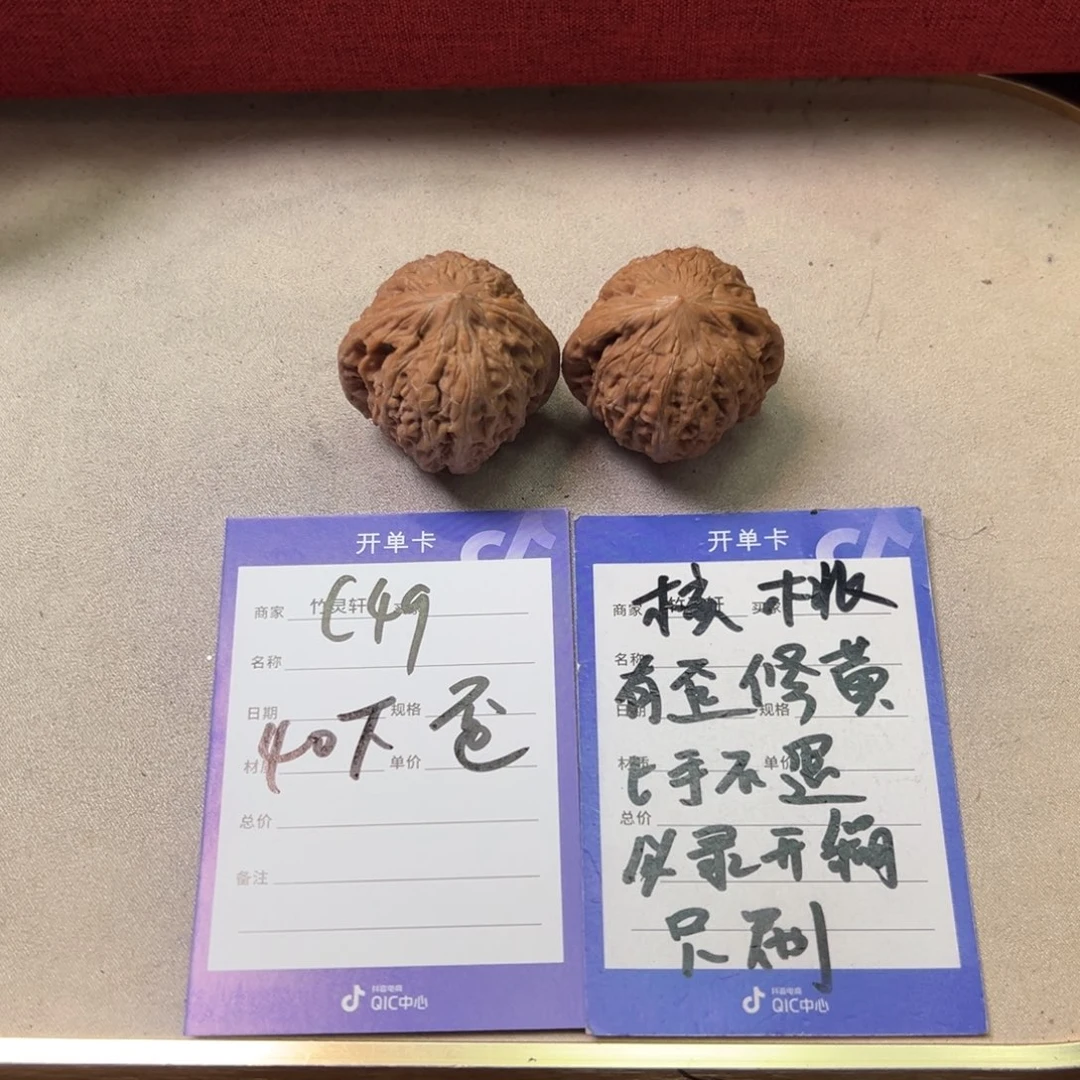 开单卡
商家 竹灵轩 C49
名称
日期 规格
40下 苍
材质 单价
总价
备注
抖音电商
QIC中心
开单卡
商家 竹灵轩 买家
核桃
名称
有歪修黄
日期 规格
材质 单价
上手不退
总价
必录开箱
只刷
抖音电商
QIC中心